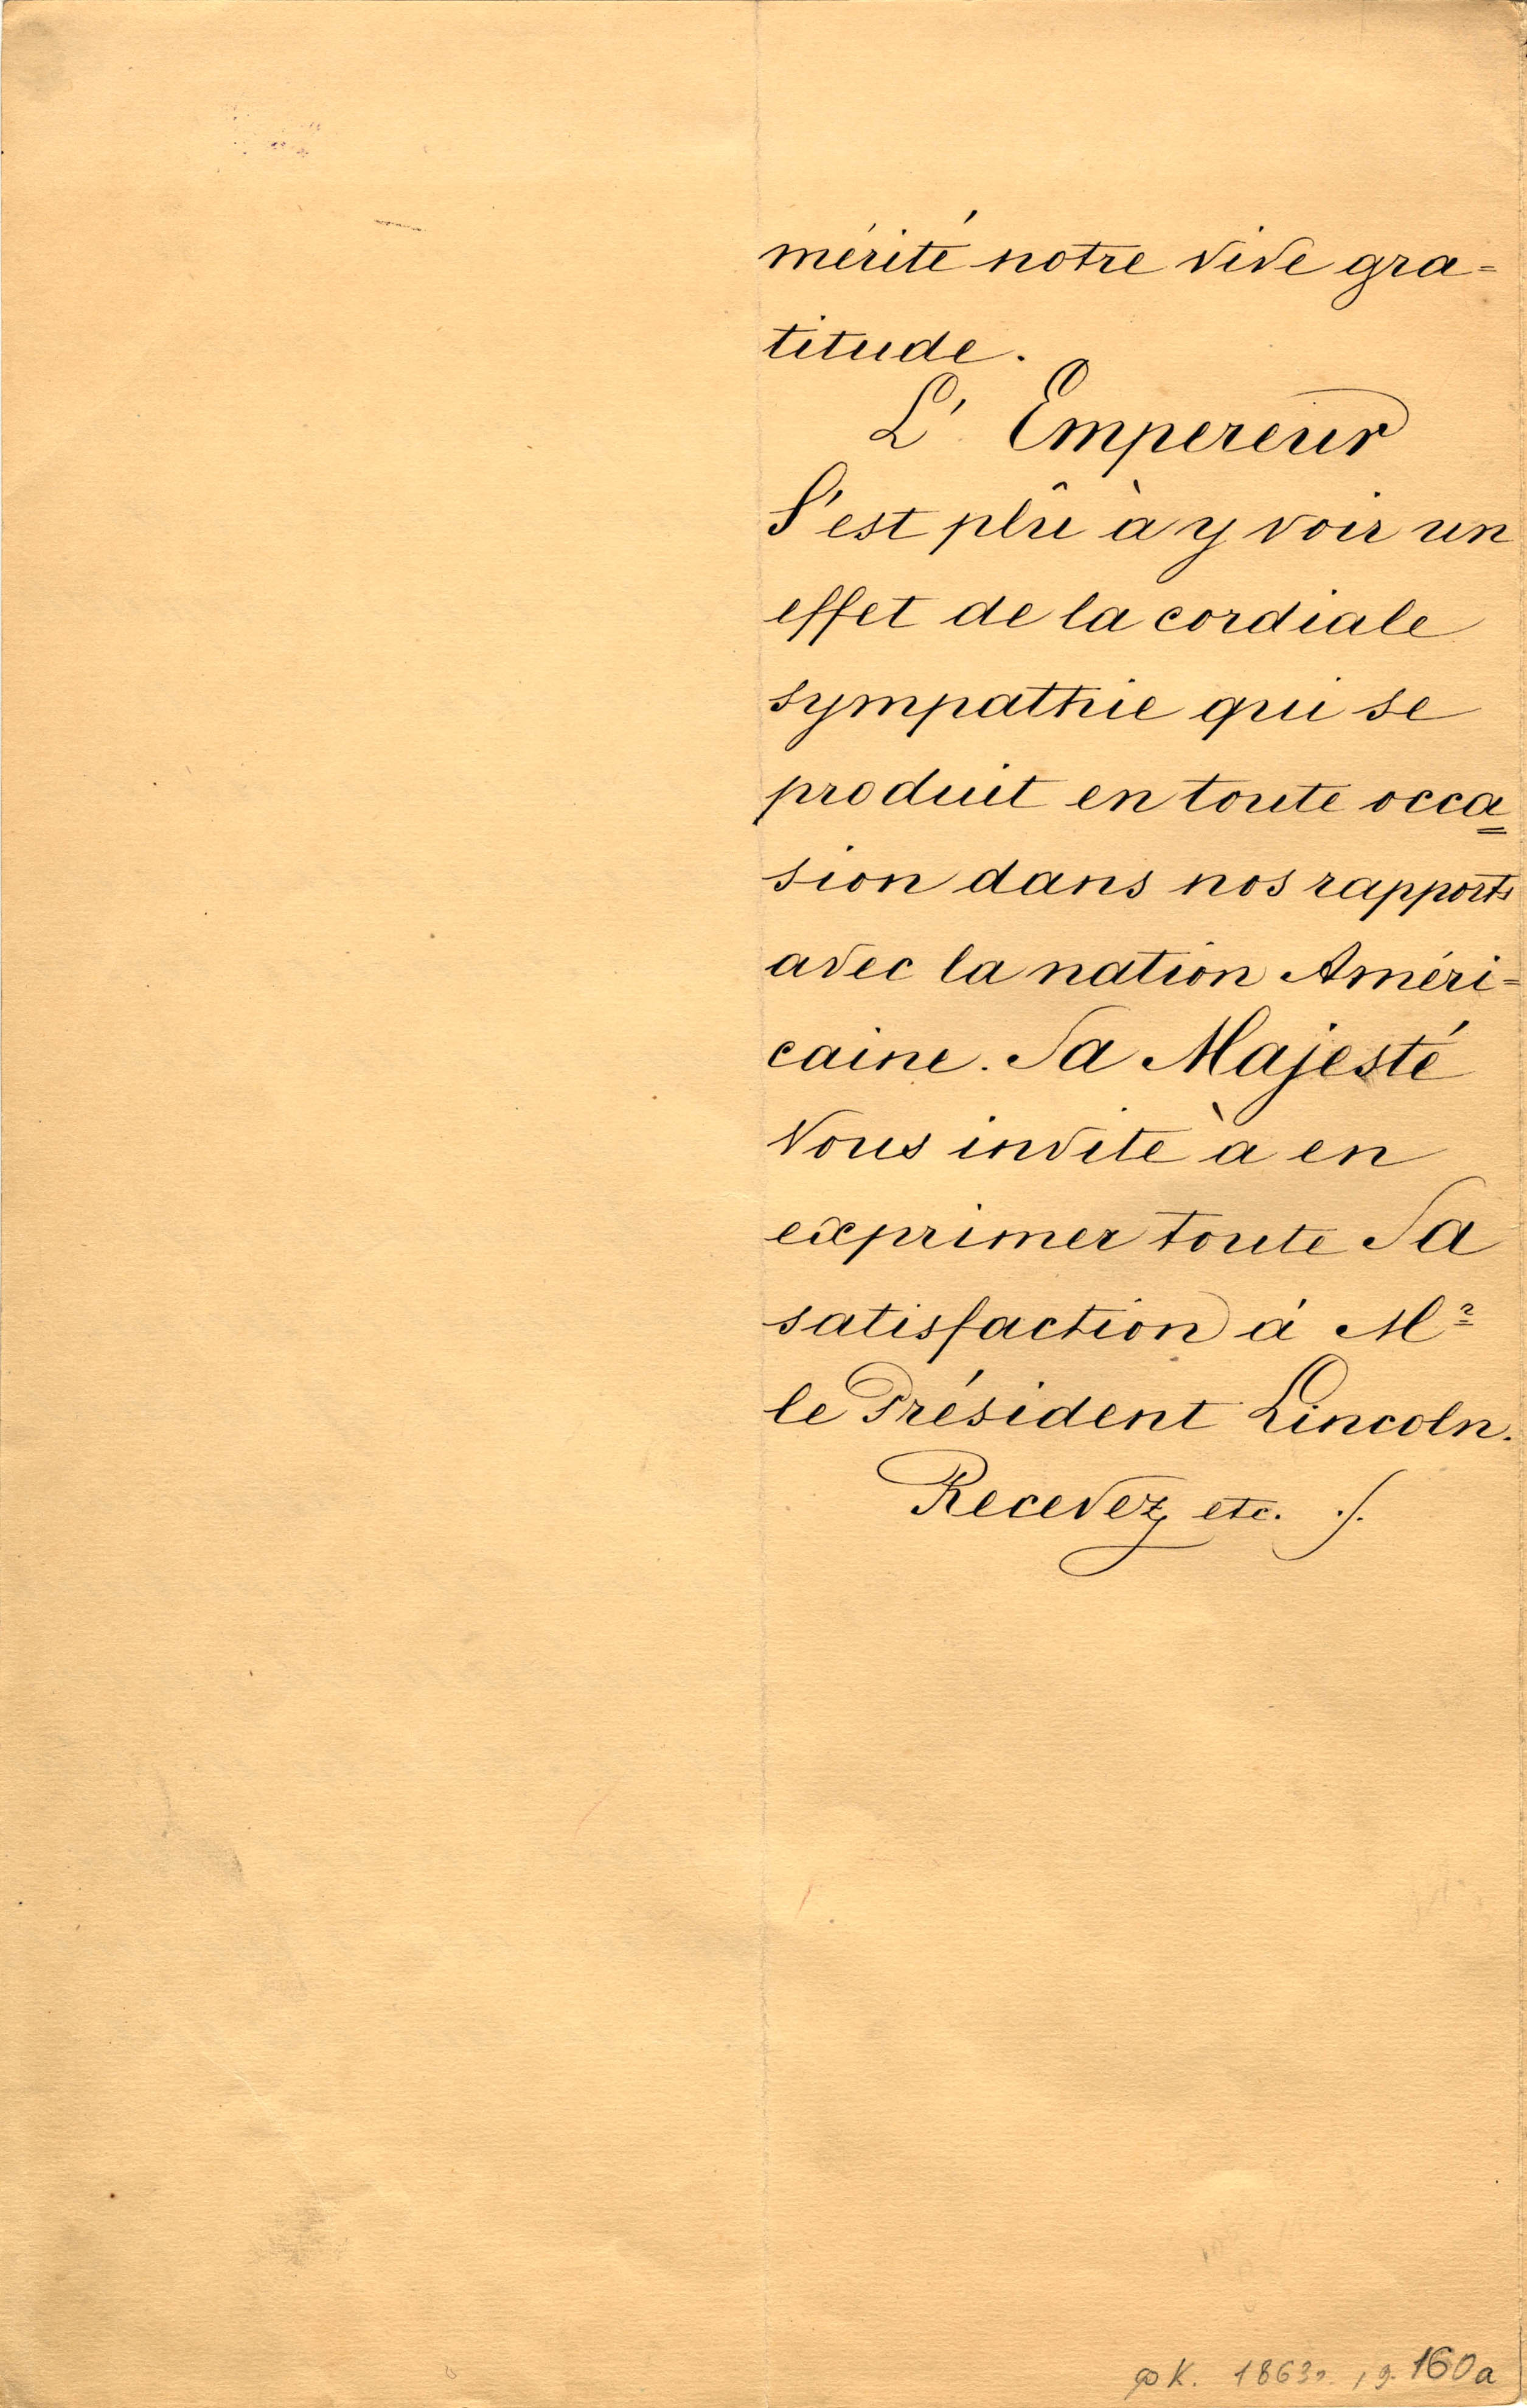 mérité notre vive gra=
titude.
L'Empereur
S'est plû à y voir un
effet de la cordiale
sympathie qui se
produit en toute occa=
sion dans nos rapports
avec la nation Améri=
caine. Sa Majesté
Vous invite à en
exprimer toute Sa
satisfaction à Mr
le Président Lincoln.
Recevez etc. ./.
ф К. 1863г., д. 160a